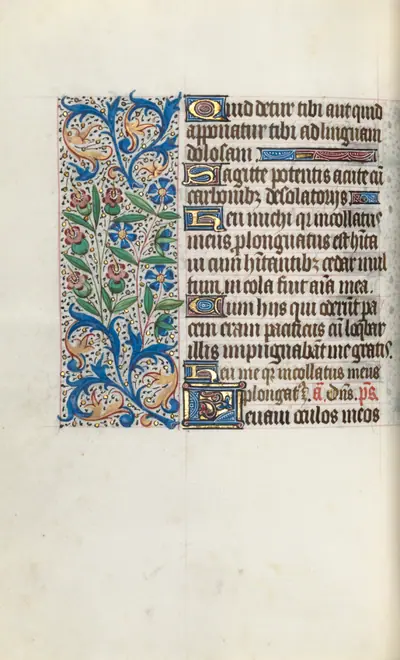 Quid detur tibi aut quid
apponatur tibi ad linguam
dolosam
Sagitte potentis acute cū
carbonibꝫ desolatoriis
Heu michi qꝫ incolatus
meus ꝓlongatus est hīta
ui cum hītantibꝫ cedar mul
tum incola fuit aīa mea.
Cum hiis qui oderūt pa
cem eram pacificus cū loqbar
illis impugnabāt me gratis.
Heu me qꝫ incollatus meus
plongatꝰ. ā. Dñs. p̄s.
Leuaui oculos meos